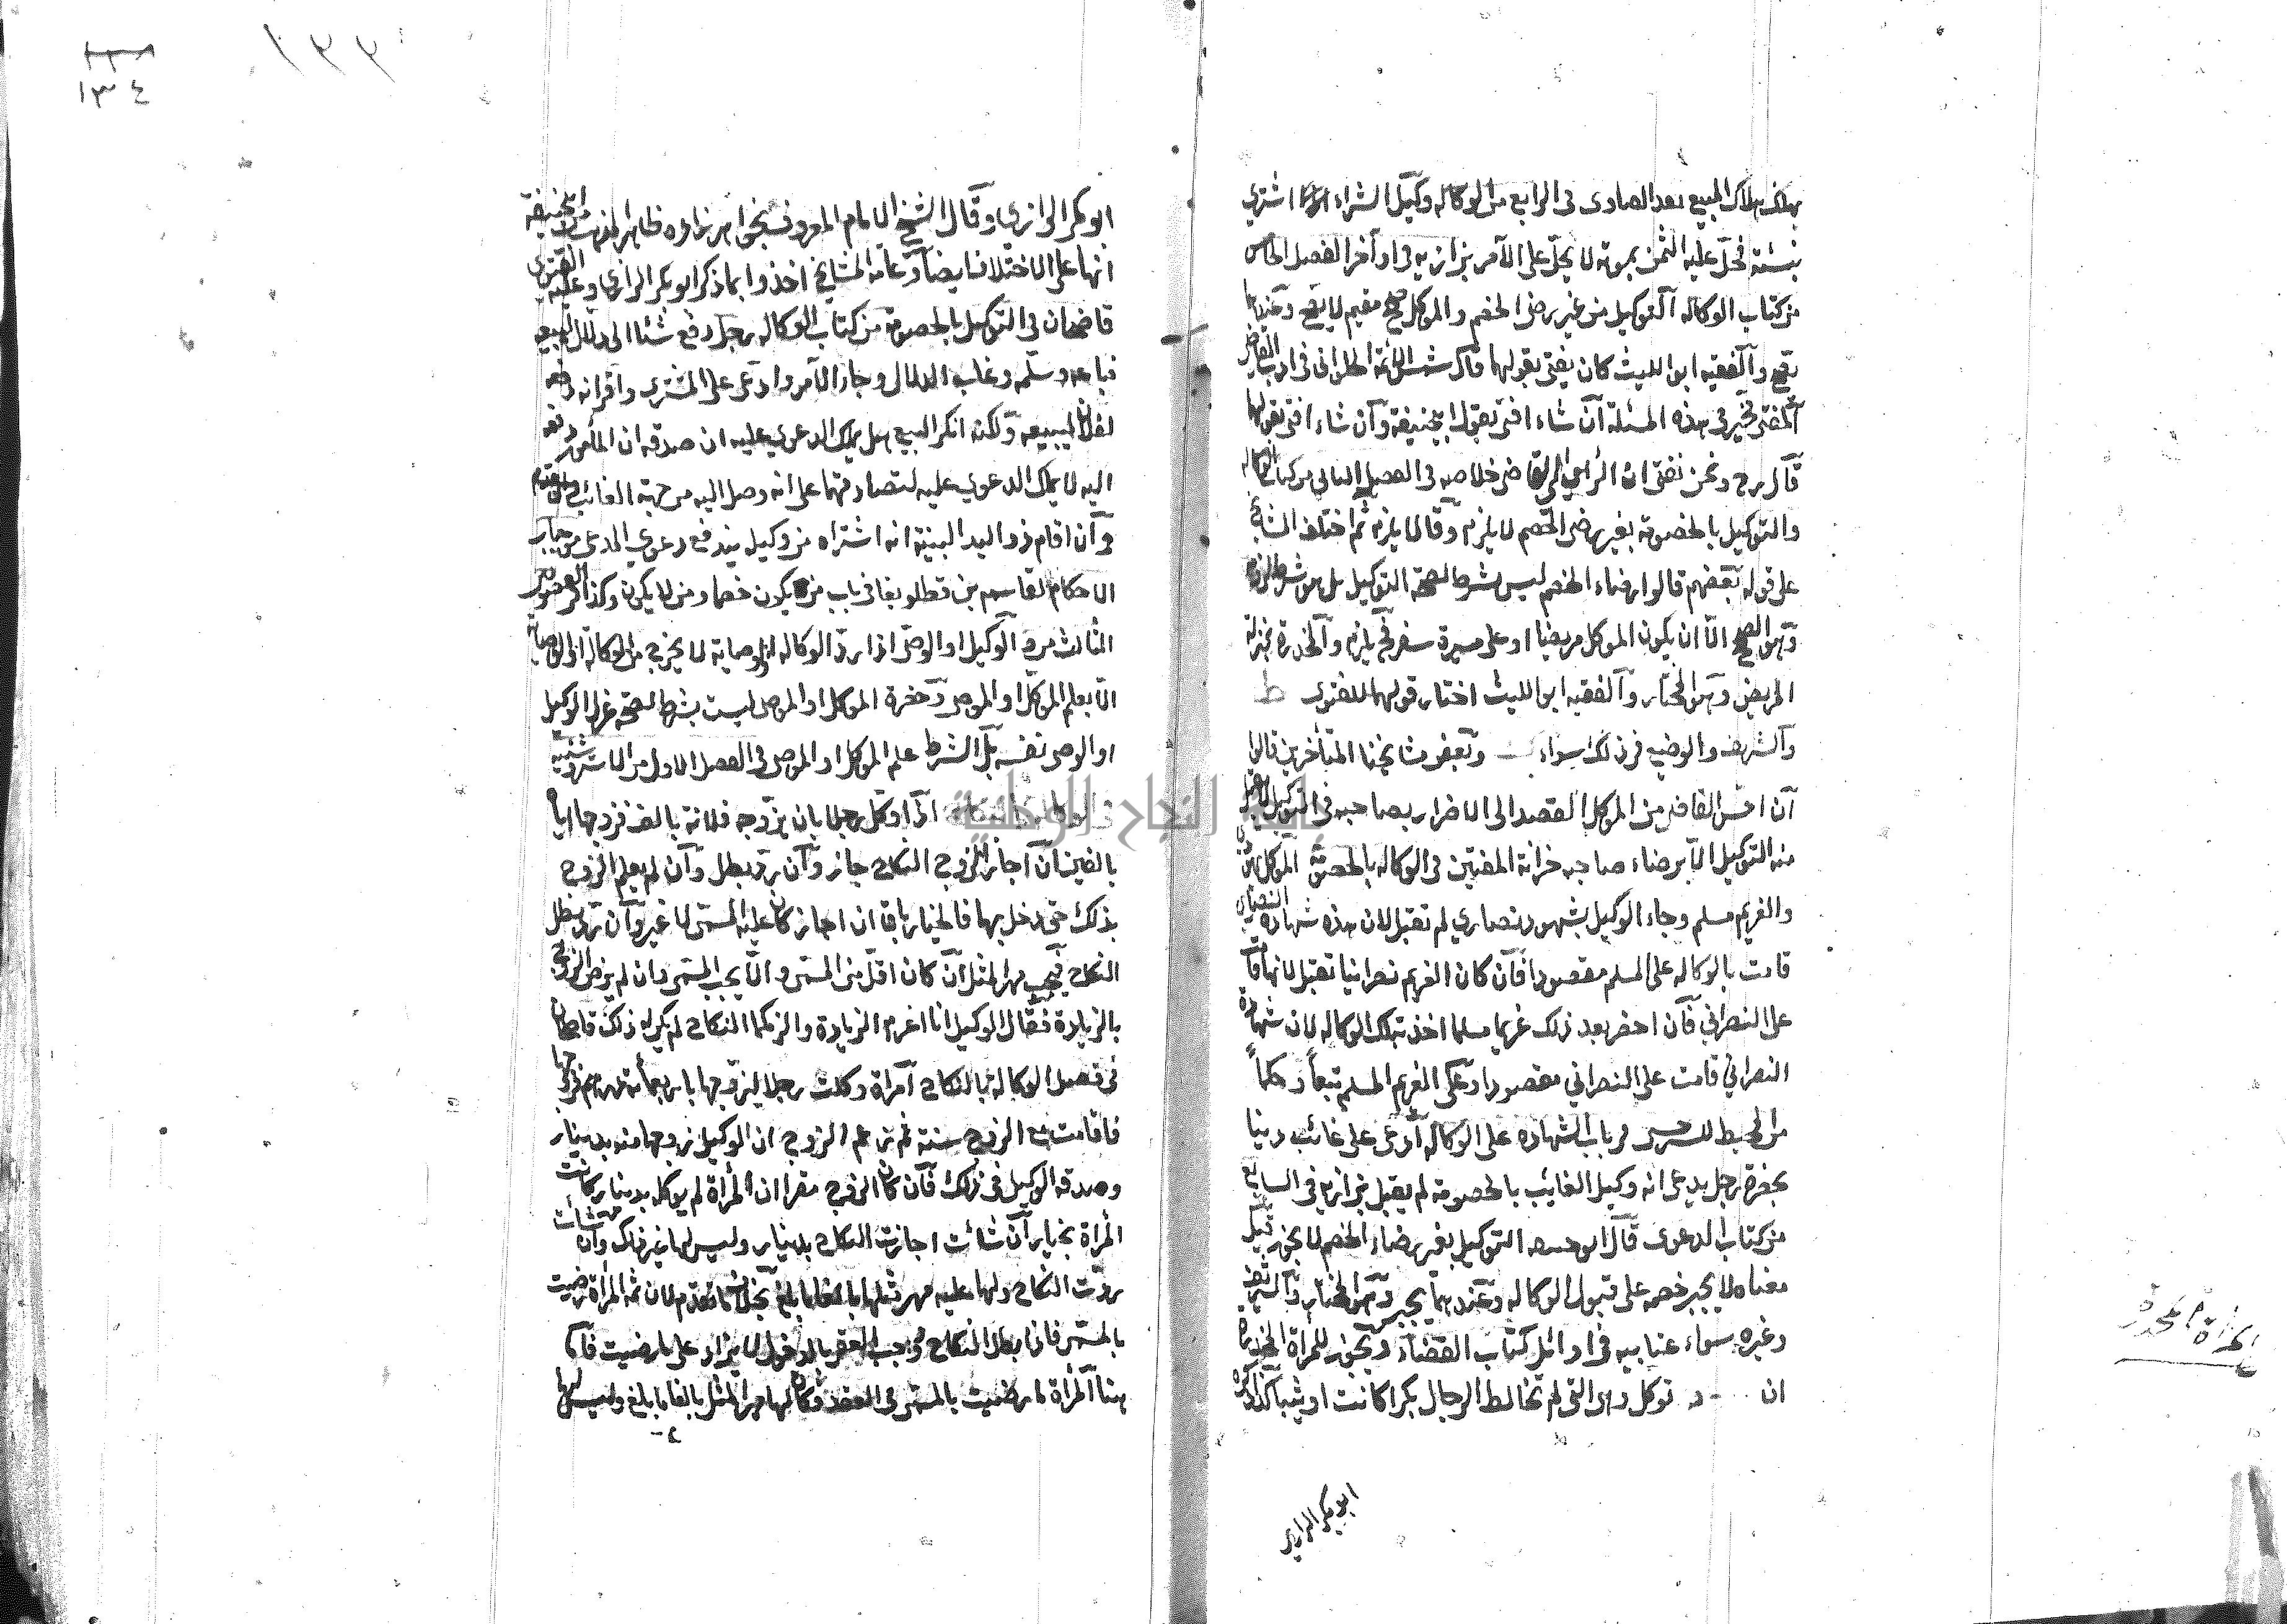 يهلك بهلاك المبيع بعد الصاوى فى الرابع من الوكاله وكيل الشراء اذا اشترى
بنسئة فحلّ عليه الثمن بموته لا يحلّ على الآمر بزازيه فى اواخر الفصل الخامس
من كتاب الوكاله التوكيل من غير رضى الخصم والموكل صحيح مقيم لا يقع وعندهما
يقع والفقيه ابو الليث كان يفتى بقولهما قال شمس الائمة الحلوانى فى ادب القاضى
المفتى مخيّر فى هذه المسئلة ان شاء افتى بقول ابى حنيفة وان شاء افتى بقولهما
قال رح ونحن نفتى ان الرأى الى القاضى خلاصه فى الفصل الثانى من كتاب الوكاله
والتوكيل بالخصومة بغير رضى الخصم لا يلزم وقالا يلزم ثم اختلف المشايخ
على قوله بعضهم قالوا رضاء الخصم ليس بشرط لصحة التوكيل بل هو شرط لزومه
وهو الصحيح الّا ان يكون الموكل مريضا او على مسيرة سفر فح يلزم والمخدرة بمنزلة
المريض وهو المختار والفقيه ابو الليث اختار قولهما للفتوى ط
والشريف والوضيع فى ذلك سواء وبعض مشايخنا المتأخرين قالوا
ان احسّ القاضى من الموكل القصد الى الاضرار بصاحبه فى التوكيل لا يقبل
منه التوكيل الّا برضاء صاحبه خزانة المفتين فى الوكاله بالخصومة الموكل
والغريم مسلم وجاء الوكيل بشهود نصارى لم تقبل لان هذه شهادة النصارى
قامت بالوكاله على المسلم مقصودا فان كان الغريم نصرانيا تقبل لانها قامت
على النصرانى فان احضر بعد ذلك غريما مسلما اخذ بتلك الوكاله لان شهادة
النصرانى قامت على النصرانى مقصودا وعلى الغريم المسلم تبعاً وحكماً
من المحيط للسرخسى فى باب الشهاده على الوكاله ادعى على غائب دينا
بحضرة رجل يدعى انه وكيل الغائب بالخصومة لم يقبل بزازيه فى السابع
من كتاب الدعوى قال ابو حنيفه التوكيل بغير رضاء الخصم لا يجوز قيل
معناه لا يجبر خصمه على قبول الوكاله وعندهما يجبر وهو المختار والشريف
وغيره سواء عتابيه فى اوائل كتاب القضاء ويجوز للمرأة المخدرة
ان توكل وهى التى لم تخالط الرجال بكرا كانت او ثيبا كذا ذكره
ابو بكر الرازى
المرأة المخدرة
١٣٣
١٣٤
ابو بكر الرازى وقال الشيخ الامام المعروف بخواهر زاده ظاهر المذهب عن ابى حنيفة
انها على الاختلاف ايضا وعامة المشايخ اخذوا بما ذكر ابو بكر الرازى وعليه الفتوى
قاضيخان فى التوكيل بالخصومة من كتاب الوكاله رجل دفع شئا الى دلال ليبيعه
فباعه وسلّمه وغاب الدلال وجاء الآمر وادعى على المشترى واقر انه دفعه
لفلان ليبيعه ولكن انكر البيع هل يملك الدعوى عليه ان صدقه ان المأمور دفعه
اليه لا يملك الدعوى عليه لتصادقهما على انه وصل اليه من جهة الغائب
وان اقام ذو اليد البينة انه اشتراه من وكيل يندفع دعوى المدعى من جناب
الاحكام لقاسم بن قطلوبغا فى باب من يكون خصما ومن لا يكون وكذا فى
الثالث مرو الوكيل او الوصى اذا ردّ الوكاله او الوصاية لا يخرج من الوكالة او الوصاية
الّا بعلم الموكل او الموصى وحضرة الموكل او الموصى ليست بشرط لصحة عزل الوكيل
او الوصى نفسه بل الشرط علم الموكل او الموصى فى الفصل الاول من الاستروشنيه
اذا وكّل رجلا بان يزوّجه فلانة بالف فزوجها اياه
بالفين ان اجاز الزوج النكاح جاز وان ردّ بطل وان لم يعلم الزوج
بذلك حتى دخل بها فالخيار باق ان اجاز كان عليه المسمى لا غير وان ردّ بطل
النكاح فيجب مهر المثل ان كان اقلّ من المسمى والّا يجب المسمى وان لم يرض الزوج
بالزيادة فقال الوكيل انا اغرم الزيادة والزمكما النكاح لم يكن له ذلك قاضيخان
فى فصل الوكاله بالنكاح امرأة وكلت رجلا ليزوّجها باربعمأة درهم فزوجها
فاقامت مع الزوج سنة ثم زعم الزوج ان الوكيل زوجها منه بدينار
وصدقه الوكيل فى ذلك فان كان الزوج مقرا ان المرأة لم يوكل بدينار كانت
المرأة بخيار ان شائت اجازت النكاح بدينار وليس لها غير ذلك وان شائت
ردّت النكاح ولها عليه مهر مثلها بالغا ما بلغ بخلاف ما تقدم لان ثمه المرأة رضيت
بالمسمى فاذا بطل النكاح وجب العقر بالدخول لا يزاد على ما رضيت فاما
هنا المرأة ما رضيت بالمسمى فى العقد فكان لها مهر المثل بالغا ما بلغ وليس لها